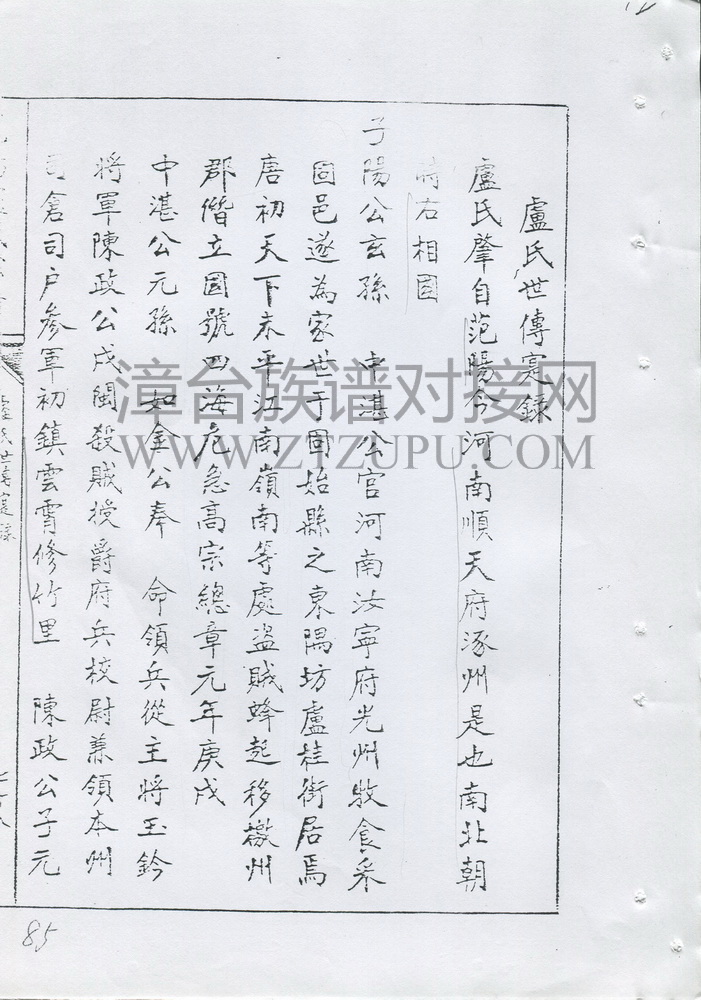 盧氏世傳寔錄
盧氏肇自范陽今河南順天府涿州是也南北朝
時右相國
子陽公玄孫 中湛公官河南汝寧府光州牧食采
固邑遂為家世于固始縣之東隅坊盧桂街居焉
唐初天下未平江南嶺南等處盜賊蜂起移檄州
郡僭立國號四海危急高宗總章元年庚戌
中湛公元孫 如金公奉 命領兵從主將玉鈐
將軍陳政公戍閩殺賊授爵府兵校尉兼領本州
司倉司户參軍初鎮雲霄修竹里 陳政公子元
盧氏世傳寔錄
85
漳台族谱对接网
WWW.ZTZUPU.COM